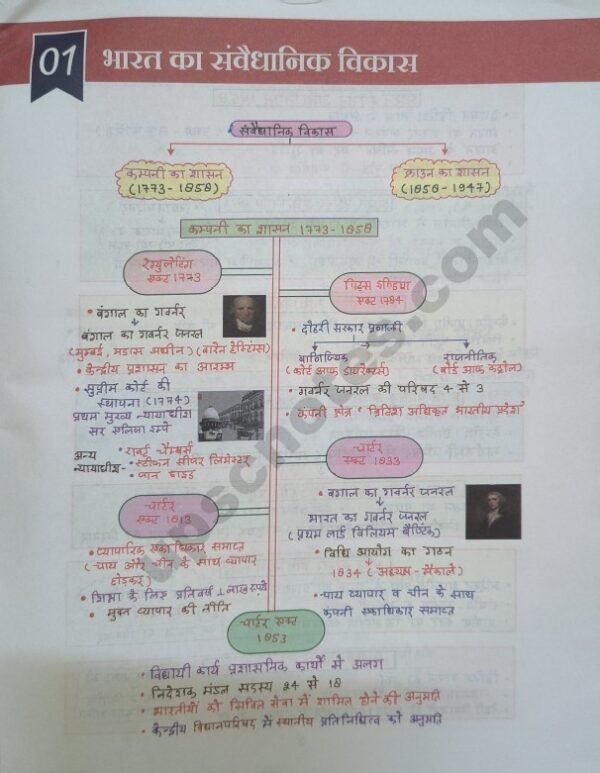 01
भारत का संवैधानिक विकास
संवैधानिक विकास
कम्पनी का शासन
(1773-1858)
क्राउन का शासन
(1858-1947)
कम्पनी का शासन 1773-1858
रेग्युलेटिंग
एक्ट 1773
पिट्स इण्डिया
एक्ट 1784
• बंगाल का गवर्नर
बंगाल का गवर्नर जनरल
(मुम्बई, मद्रास अधीन) (वारेन हेस्टिंग्स)
• केन्द्रीय प्रशासन का आरम्भ
• सुप्रीम कोर्ट की
स्थापना (1774)
प्रथम मुख्य न्यायाधीश
सर एलिजा इम्पे
अन्य
न्यायाधीश-
• राबर्ट चैम्बर्स
• स्टीफन सीजर लिमेस्टर
• जान हाइड
• दोहरी सरकार प्रणाली
वाणिज्यिक
(कोर्ट आफ डायरेक्टर्स)
राजनीतिक
(बोर्ड आफ कंट्रोल)
• गवर्नर जनरल की परिषद 4 से 3
• कंपनी क्षेत्र 'ब्रिटिश अधिकृत भारतीय प्रदेश'
चार्टर
एक्ट 1813
• व्यापारिक एकाधिकार समाप्त
(चाय और चीन के साथ व्यापार
छोड़कर)
• शिक्षा के लिए प्रतिवर्ष 1 लाख रुपये
• मुक्त व्यापार की नीति
चार्टर
एक्ट 1833
• बंगाल का गवर्नर जनरल
भारत का गवर्नर जनरल
(प्रथम लार्ड विलियम बैण्टिंक)
• विधि आयोग का गठन
1834 (अध्यक्ष - मैकाले)
• चाय व्यापार व चीन के साथ
कंपनी एकाधिकार समाप्त
चार्टर एक्ट
1853
• विधायी कार्य प्रशासनिक कार्यों से अलग
• निदेशक मंडल सदस्य 24 से 18
• भारतीयों को सिविल सेवा में शामिल होने की अनुमति
• केन्द्रीय विधानपरिषद में स्थानीय प्रतिनिधित्व को अनुमति
upscnotes.com